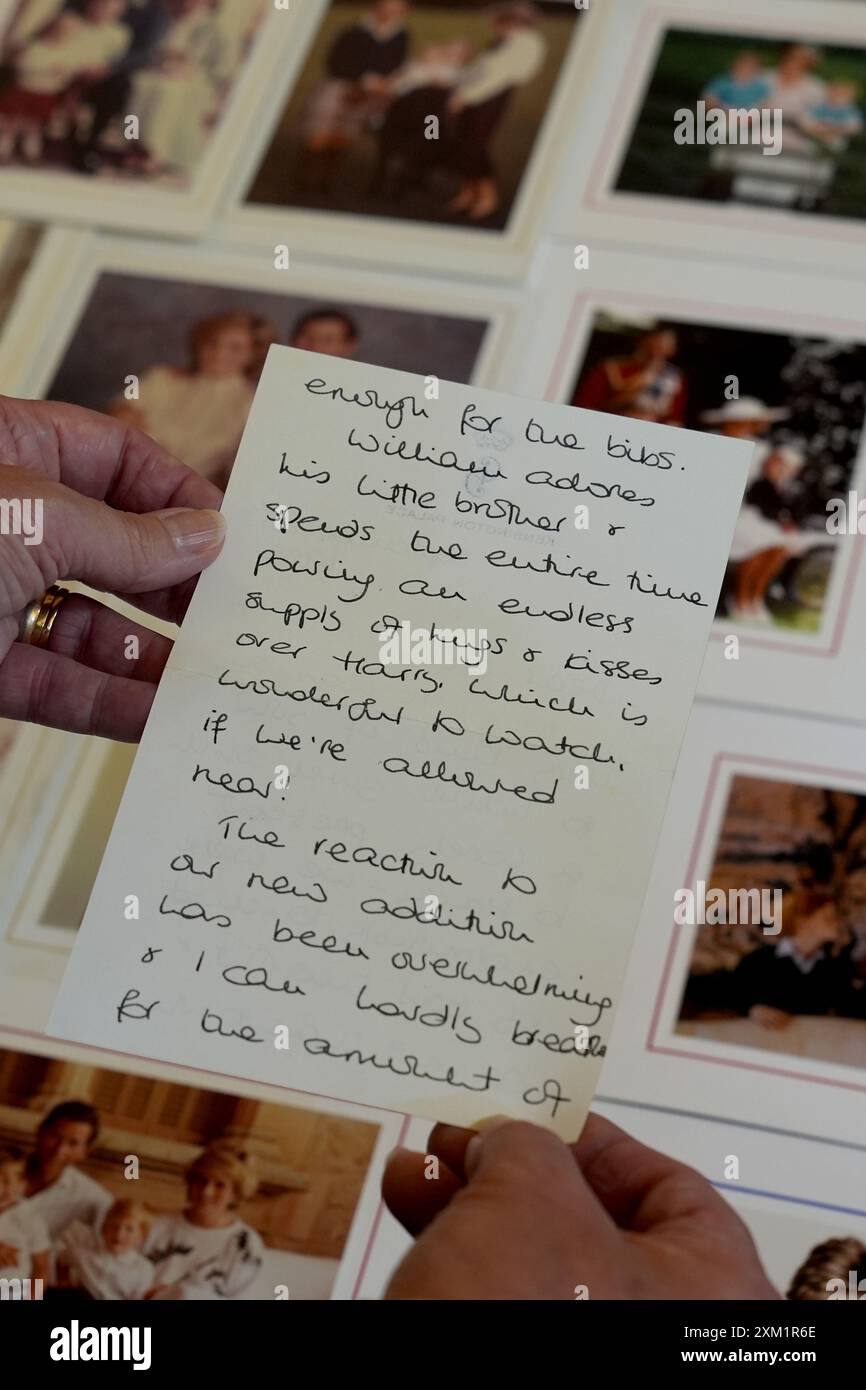 enough for the bibs.
William adores
his little brother &
spends the entire time
pouring an endless
supply of hugs & kisses
over Harry, which is
wonderful to watch,
if we're allowed
near!
The reaction to
our new addition
has been overwhelming
& I can hardly breathe
for the amount of
KENSINGTON PALACE
a
alamy
alamy
Image ID: 2XM1R6E
www.alamy.com